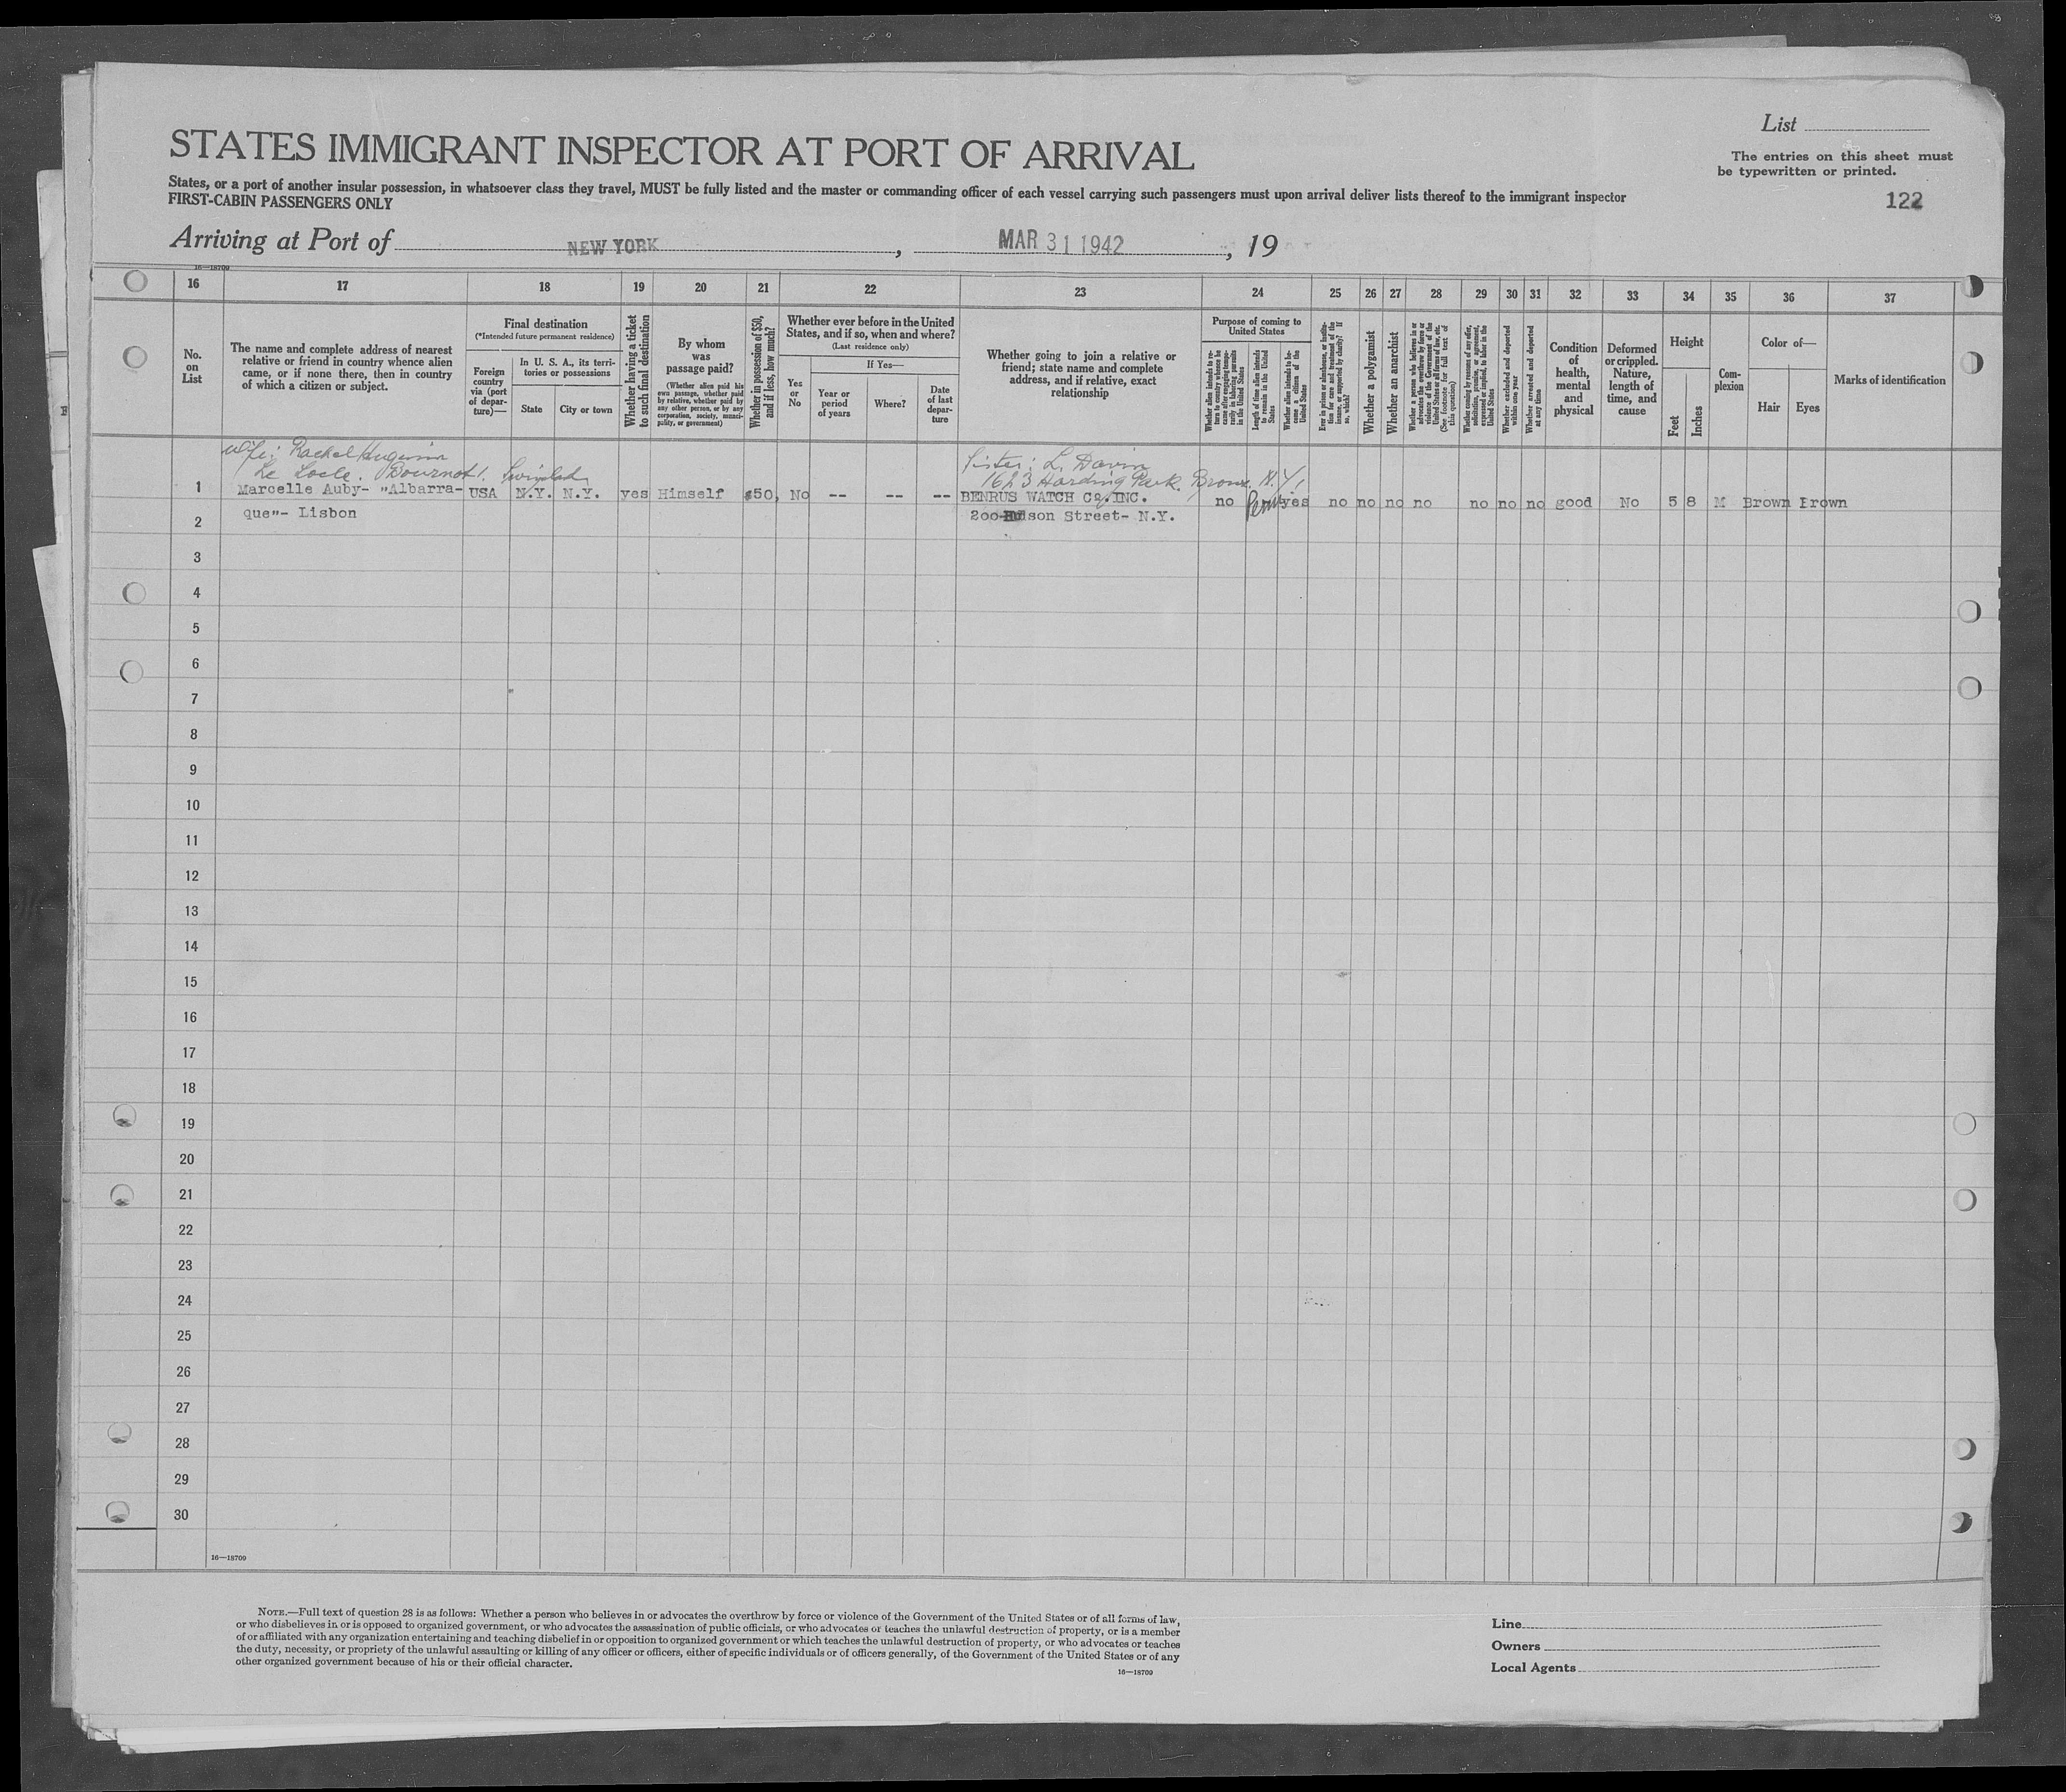 List
STATES IMMIGRANT INSPECTOR AT PORT OF ARRIVAL
The entries on this sheet must
be typewritten or printed.
States, or a port of another insular possession, in whatsoever class they travel, MUST be fully listed and the master or commanding officer of each vessel carrying such passengers must upon arrival deliver lists thereof to the immigrant inspector
FIRST-CABIN PASSENGERS ONLY
122
Arriving at Port of NEW YORK, MAR 31 1942, 19
16—18709
16 17 18 19 20 21 22 23 24 25 26 27 28 29 30 31 32 33 34 35 36 37
No.
on
List
The name and complete address of nearest
relative or friend in country whence alien
came, or if none there, then in country
of which a citizen or subject.
Final destination
(*Intended future permanent residence)
Foreign
country
via (port
of depar-
ture)—
In U. S. A., its terri-
tories or possessions
State
City or town
Whether having a ticket
to such final destination
By whom
was
passage paid?
(Whether alien paid his
own passage, whether paid
by relative, whether paid by
any other person, or by any
corporation, society, munici-
pality, or government)
Whether in possession of $50,
and if less, how much?
Whether ever before in the United
States, and if so, when and where?
(Last residence only)
Yes
or
No
If Yes—
Year or
period
of years
Where?
Date
of last
depar-
ture
Whether going to join a relative or
friend; state name and complete
address, and if relative, exact
relationship
Purpose of coming to
United States
Whether alien intends to re-
turn to country whence he
came after engaging tempo-
rarily in laboring pursuits
in the United States
Length of time alien intends
to remain in the United
States
Whether alien intends to be-
come a citizen of the
United States
Ever in prison or almshouse, or institu-
tion for care and treatment of the
insane, or supported by charity? If
so, which?
Whether a polygamist
Whether an anarchist
Whether a person who believes in or
advocates the overthrow by force or
violence of the Government of the
United States or all forms of law, etc.
(See footnote for full text of
this question)
Whether coming by reasons of any offer,
solicitation, promise, or agreement,
expressed or implied, to labor in the
United States
Whether excluded and deported
within one year
Whether arrested and deported
at any time
Condition
of
health,
mental
and
physical
Deformed
or crippled.
Nature,
length of
time, and
cause
Height
Feet
Inches
Com-
plexion
Color of—
Hair
Eyes
Marks of identification
wife: Rachel Huguenin
Le Locle. Bournot 1. Switzland
Sister: L. Davin
1623 Harding Park. Bronx. N.Y.
1 Marcelle Auby- "Albarra- USA N.Y. N.Y. yes Himself $50, No -- -- -- BENRUS WATCH Co, INC. no Perm yes no no no no no no no good No 5 8 M Brown Brown
2 que"- Lisbon 200-Hudson Street- N.Y.
3
4
5
6
7
8
9
10
11
12
13
14
15
16
17
18
19
20
21
22
23
24
25
26
27
28
29
30
16—18709
NOTE.—Full text of question 28 is as follows: Whether a person who believes in or advocates the overthrow by force or violence of the Government of the United States or of all forms of law,
or who disbelieves in or is opposed to organized government, or who advocates the assassination of public officials, or who advocates or teaches the unlawful destruction of property, or is a member
of or affiliated with any organization entertaining and teaching disbelief in or opposition to organized government or which teaches the unlawful destruction of property, or who advocates or teaches
the duty, necessity, or propriety of the unlawful assaulting or killing of any officer or officers, either of specific individuals or of officers generally, of the Government of the United States or of any
other organized government because of his or their official character.
16—18709
Line
Owners
Local Agents